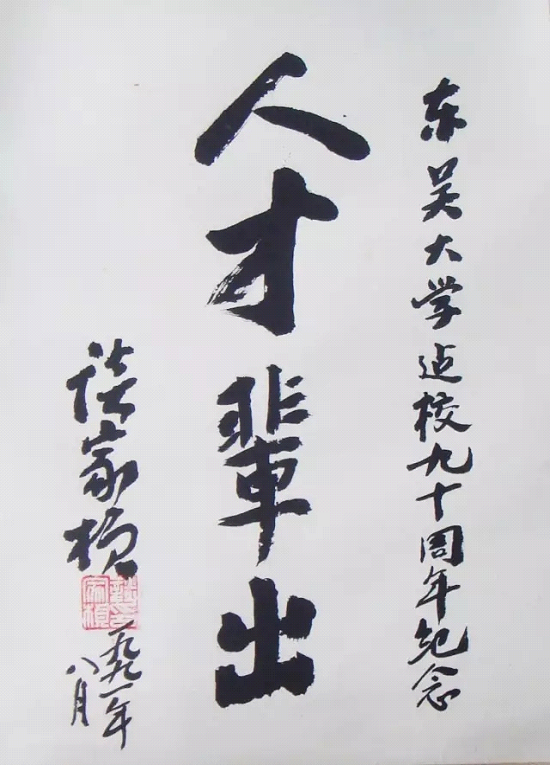 东吴大学迠校九十周年纪念
人才輩出
谈家桢
一九九一年
八月